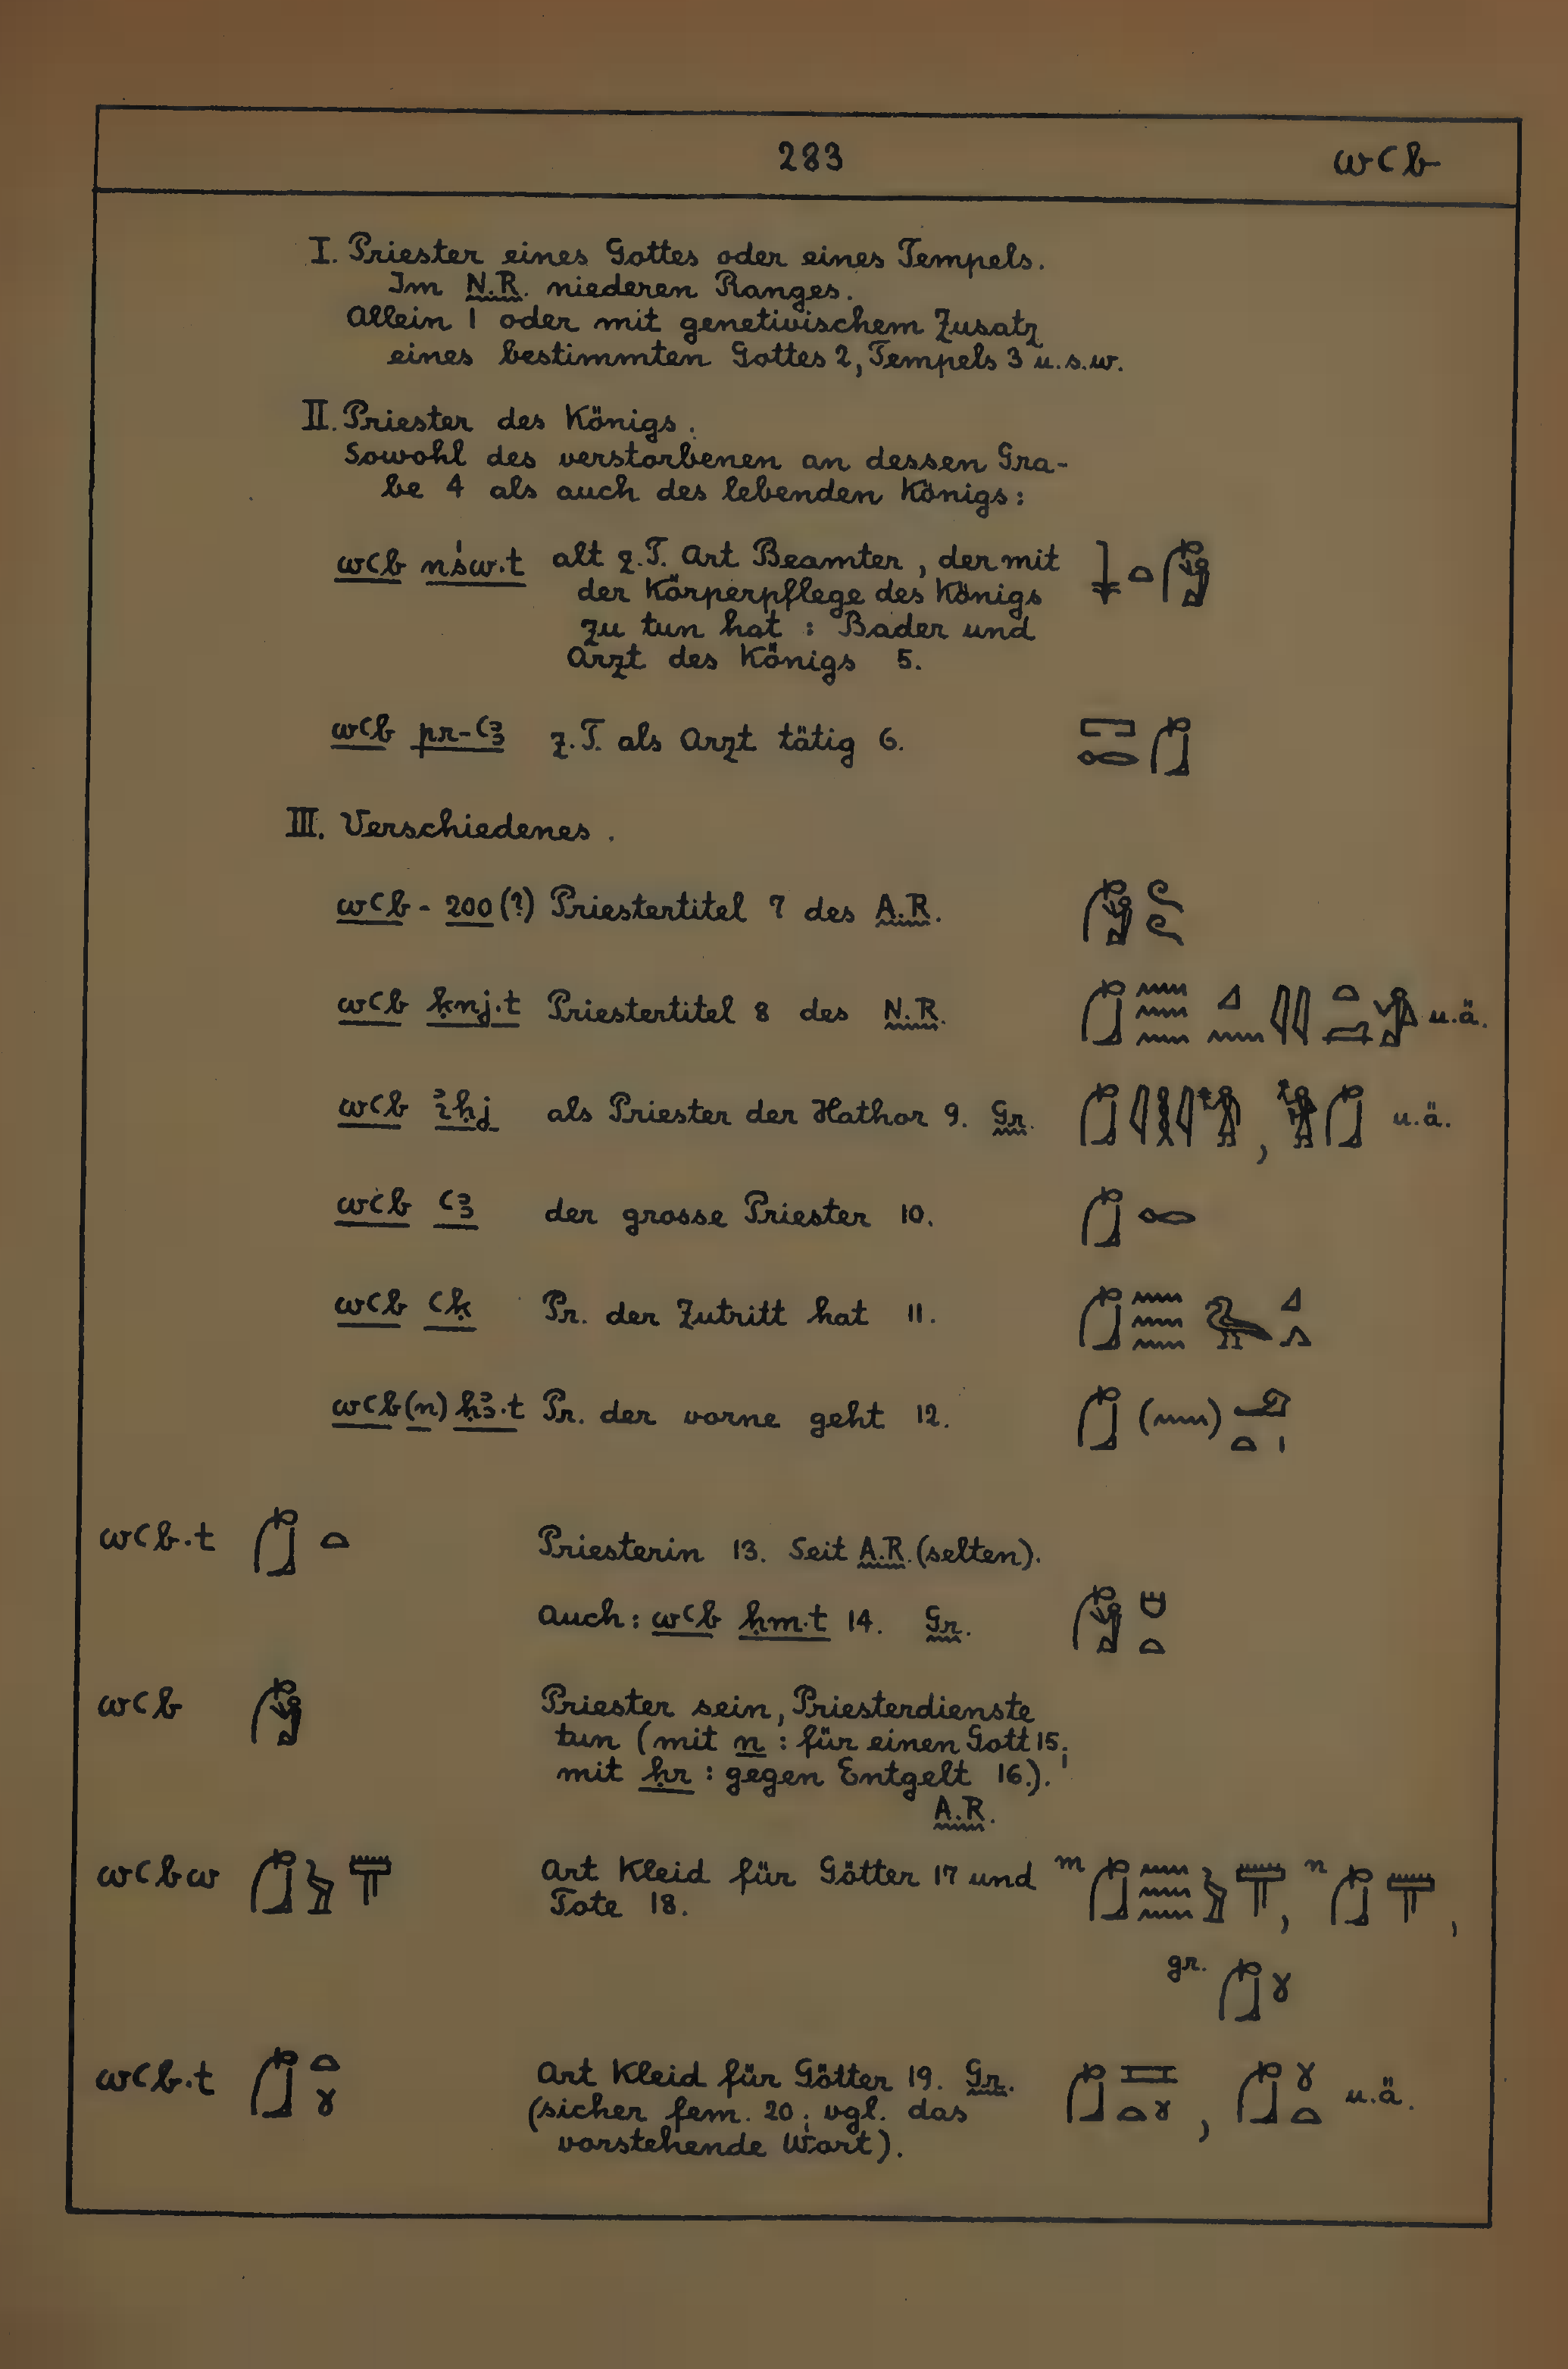 283 wꜥb
I. Priester eines Gottes oder eines Tempels.
Im N.R. niederen Ranges.
Allein 1 oder mit genetivischem Zusatz
eines bestimmten Gottes 2, Tempels 3 u.s.w.
II. Priester des Königs.
Sowohl des verstorbenen an dessen Gra-
be 4 als auch des lebenden Königs:
wꜥb nśw.t alt z.T. Art Beamter, der mit
der Körperpflege des Königs
zu tun hat: Bader und
Arzt des Königs 5.
wꜥb pr-ꜥꜣ z.T. als Arzt tätig 6.
III. Verschiedenes.
wꜥb - 200 (?) Priestertitel 7 des A.R.
wꜥb ḳnj.t Priestertitel 8 des N.R. u.ä.
wꜥb iḥj als Priester der Hathor 9. Gr. u.ä.
wꜥb ꜥꜣ der grosse Priester 10.
wꜥb ꜥḳ Pr. der Zutritt hat 11.
wꜥb (n) ḥꜣ.t Pr. der vorne geht 12.
wꜥb.t Priesterin 13. Seit A.R. (selten).
Auch: wꜥb ḥm.t 14. Gr.
wꜥb Priester sein, Priesterdienste
tun (mit n: für einen Gott 15;
mit ḥr: gegen Entgelt 16.).
A.R.
wꜥbw Art Kleid für Götter 17 und m , n ,
Tote 18.
gr.
wꜥb.t Art Kleid für Götter 19. Gr. , u.ä.
(sicher fem. 20; vgl. das
vorstehende Wort).